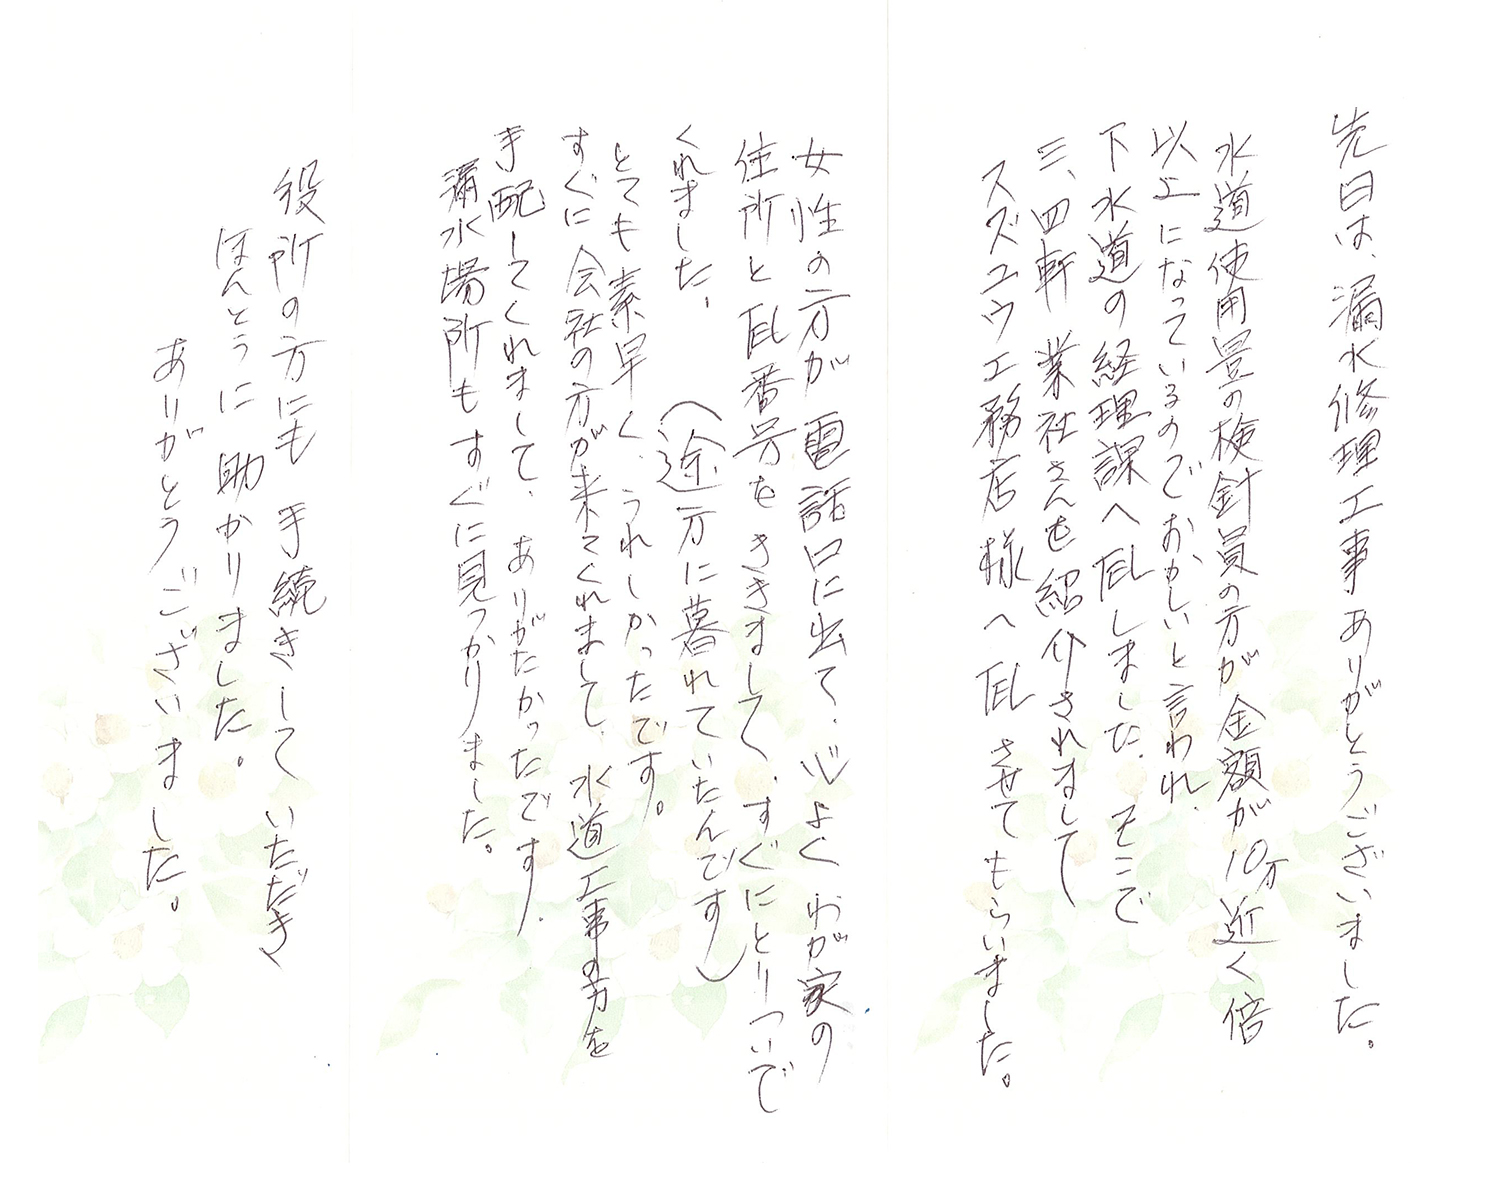 先日は、漏水修理工事ありがとうございました。
水道使用量の検針員の方が金額が10万近く倍
以上になっているのでおかしいと言われ、
下水道の経理課へTELしました。そこで
三、四軒 業社さんを紹介されまして
スズユウ工務店様へTELさせてもらいました。
女性の方が電話口に出て、心よくわが家の
住所とTEL番号をききまして、すぐにとりついで
くれました。
(途方に暮れていたんです)
とても素早く、うれしかったです。
すぐに会社の方が来てくれまして、水道工事の方を
手配してくれまして、ありがたかったです。
漏水場所もすぐに見つかりました。
役所の方にも手続きして いただき
ほんとうに助かりました。
ありがとうございました。